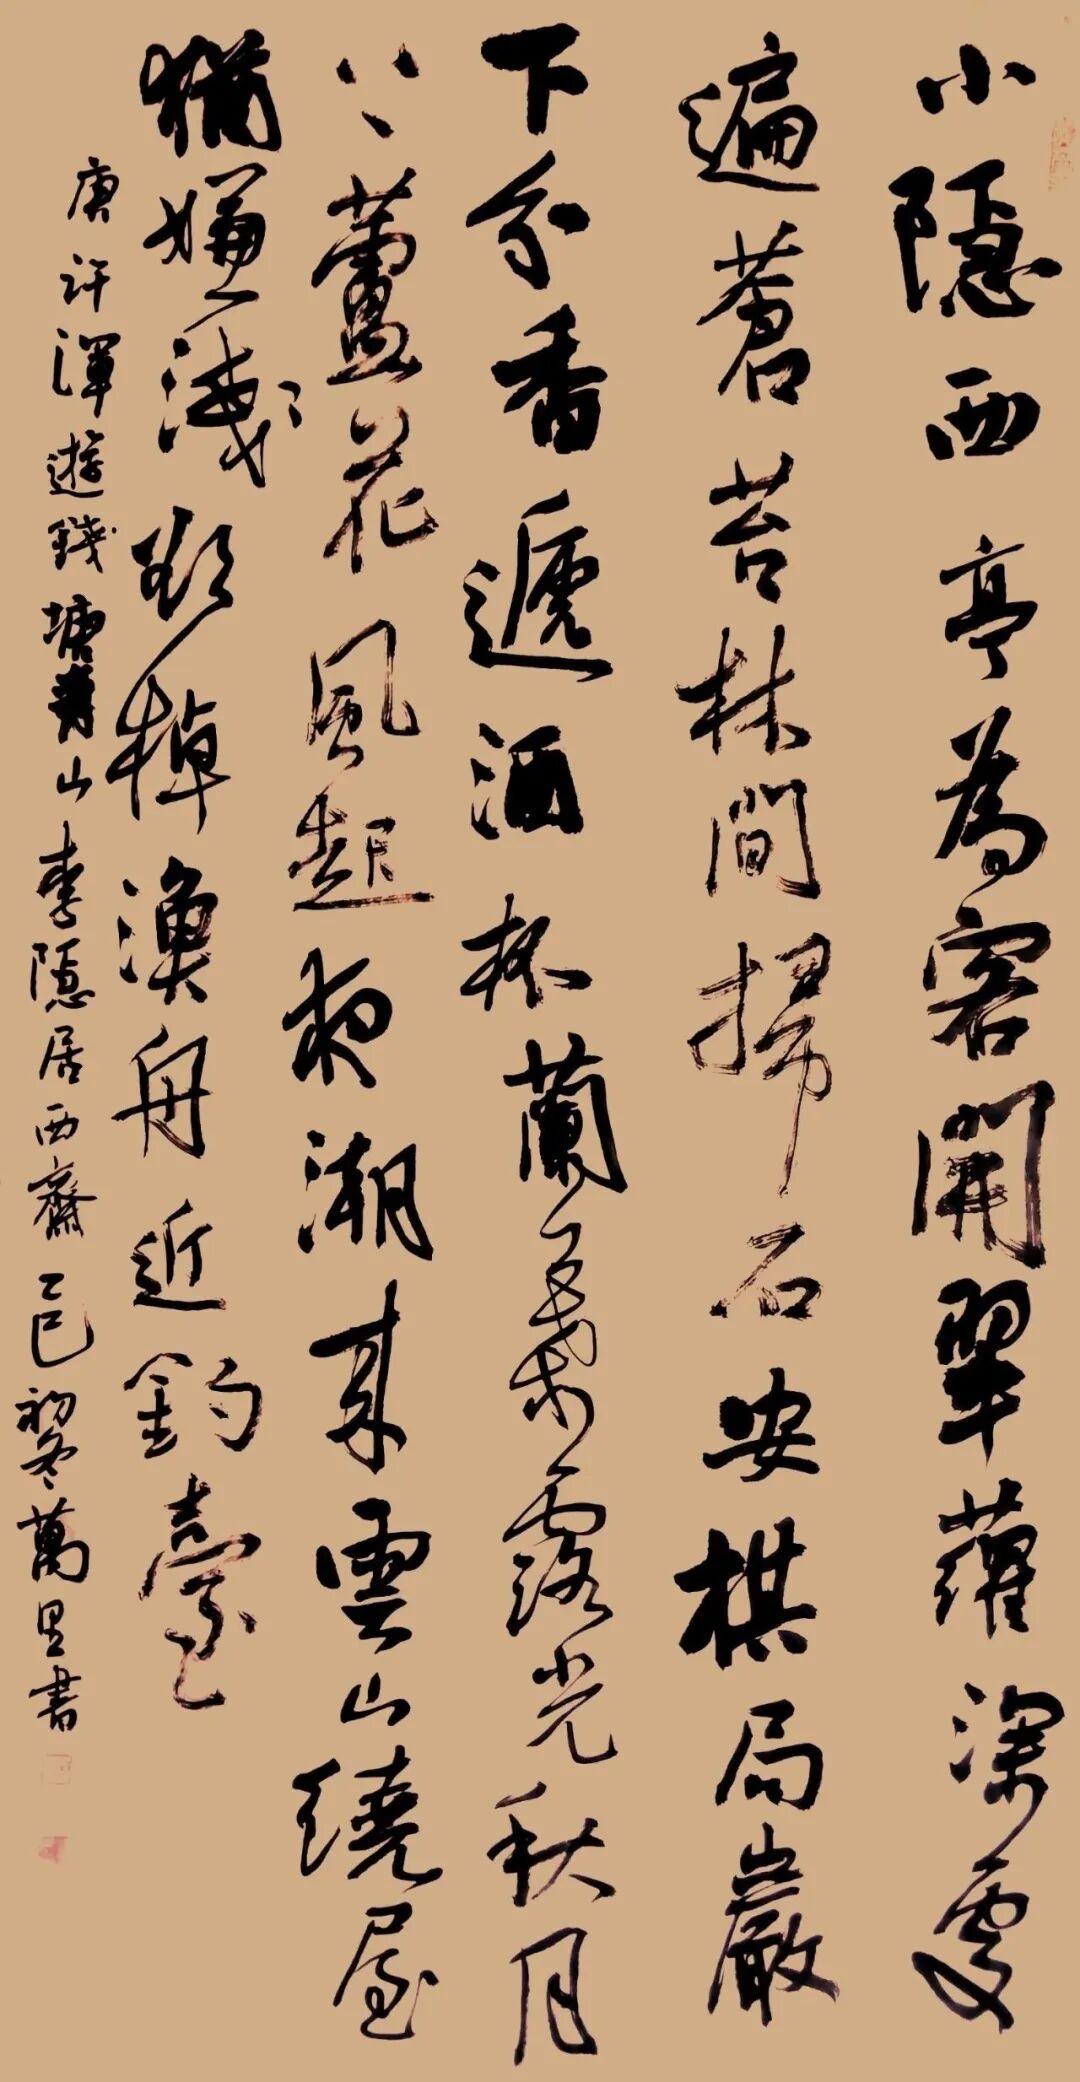 小隱西亭為客開翠蘿深處
遍蒼苔林間掃石安棋局巖
下分香遞酒杯蘭葉露光秋月
上蘆花風起夜潮來雲山繞屋
猶嫌淺欲棹漁舟近釣臺
唐許渾遊錢塘青山李隱居西齋乙巳初冬萬里書